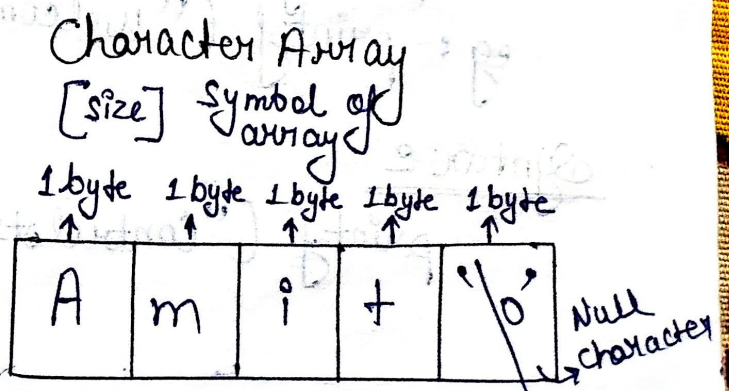 Character Array
[size] Symbol of
array
1 byte 1 byte 1 byte 1 byte 1 byte
A m i t '\0'
Null
character